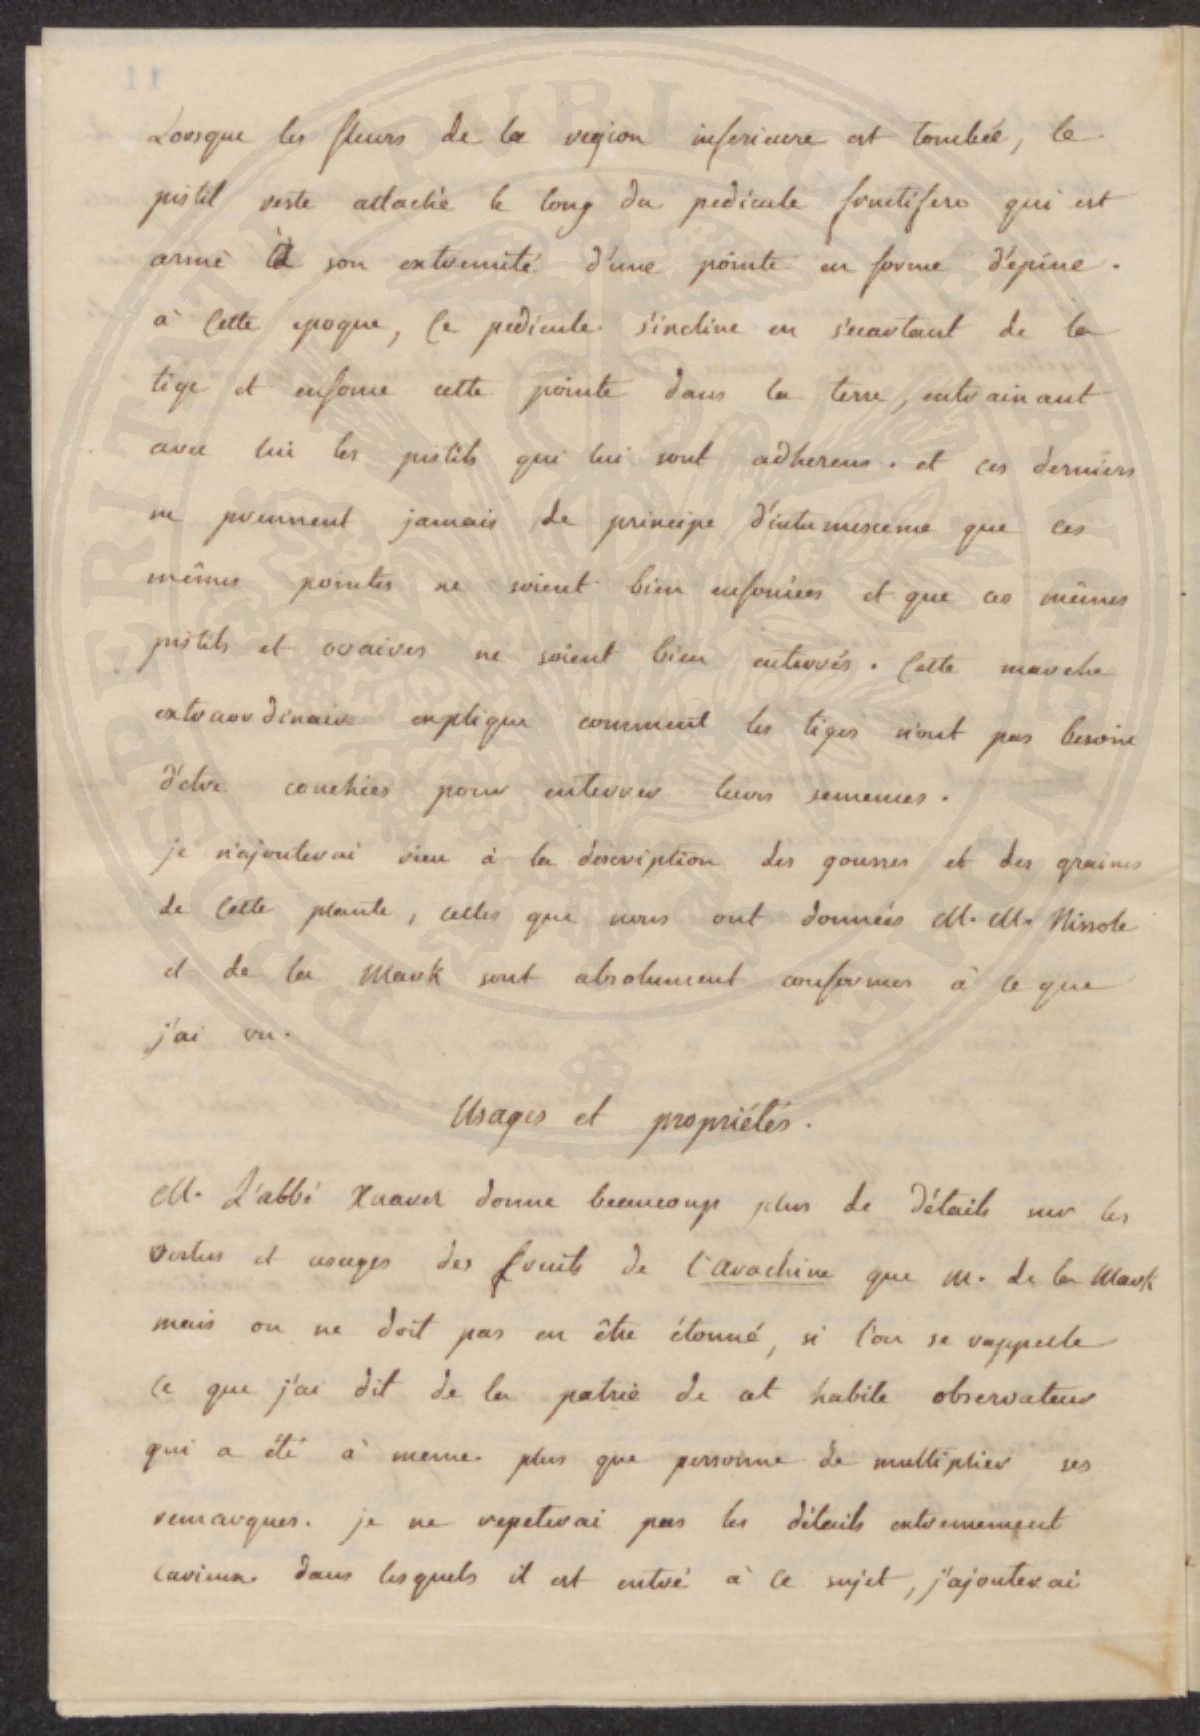 Lorsque les fleurs de la region inferieure est tombée, le
pistil reste attaché le long du pedicule fructifere qui est
armé à son extremité d'une pointe en forme d'epine.
à Cette epoque, Ce pedicule s'incline en s'ecartant de la
tige et enfonce cette pointe dans la terre, entrainant
avec lui les pistils qui lui sont adherens. et ces derniers
ne prennent jamais de principe d'intumescence que ces
mêmes pointes ne soient bien enfoncées et que ces mêmes
pistils et ovaires ne soient bien enterrés. Cette marche
extraordinaire explique comment les tiges n'ont pas besoin
d'etre couchées pour enterrer leurs semences.
je n'ajouterai rien à la description des gousses et des graines
de Cette plante, celles que nous ont données M. M. Nissole
et de la Mark sont absolument conformes à ce que
j'ai vu.
Usages et propriétés.
M. L'abbé donne beaucoup plus de détails sur les
vertus et usages des fruits de l'arachine que M. de la Mark
mais on ne doit pas en être étonné, si l'on se rappelle
Ce que j'ai dit de la patrie de cet habile observateur
qui a été à meme plus que personne de multiplier ses
remarques. je ne repeterai pas les détails extremement
Curieux dans lesquels il est entré à ce sujet, j'ajouterai
11
PROSPERITAT PUBLICA AUGET